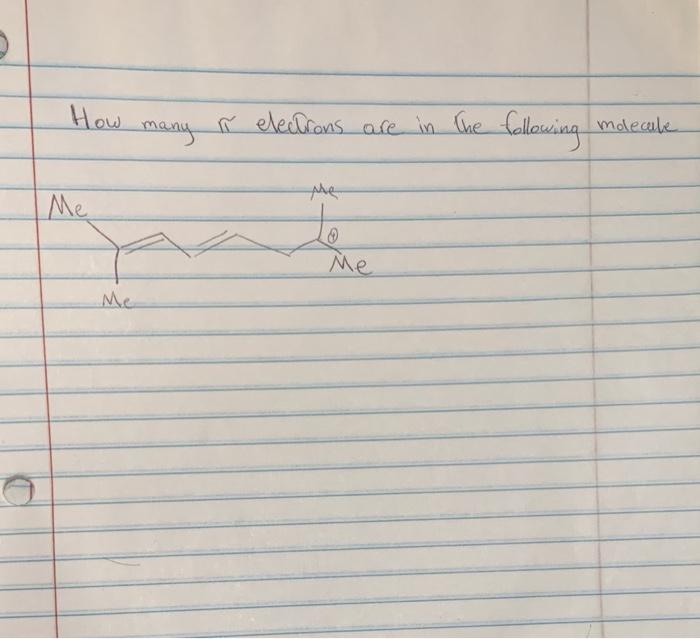 How many π electrons are in the following molecule
Me
Me
⊕
Me
Me